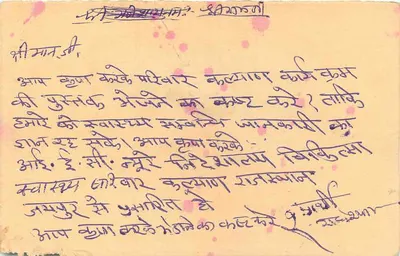 श्रीमान जी,
आप कृपा करके परिवार कल्याण कार्यक्रम
की पुस्तक भेजने का कष्ट करे? ताकि
हमारे को स्वास्थ्य सम्बन्धि जानकारी का
ज्ञान हो सके आप कृपा करके:-
आई. ई. सी. ब्यूरो निदेशालय चिकित्सा
स्वास्थ्य परिवार कल्याण राजस्थान
जयपुर से प्रसारित हो
आप कृपा करके भेजने का कष्ट करे प्रार्थी